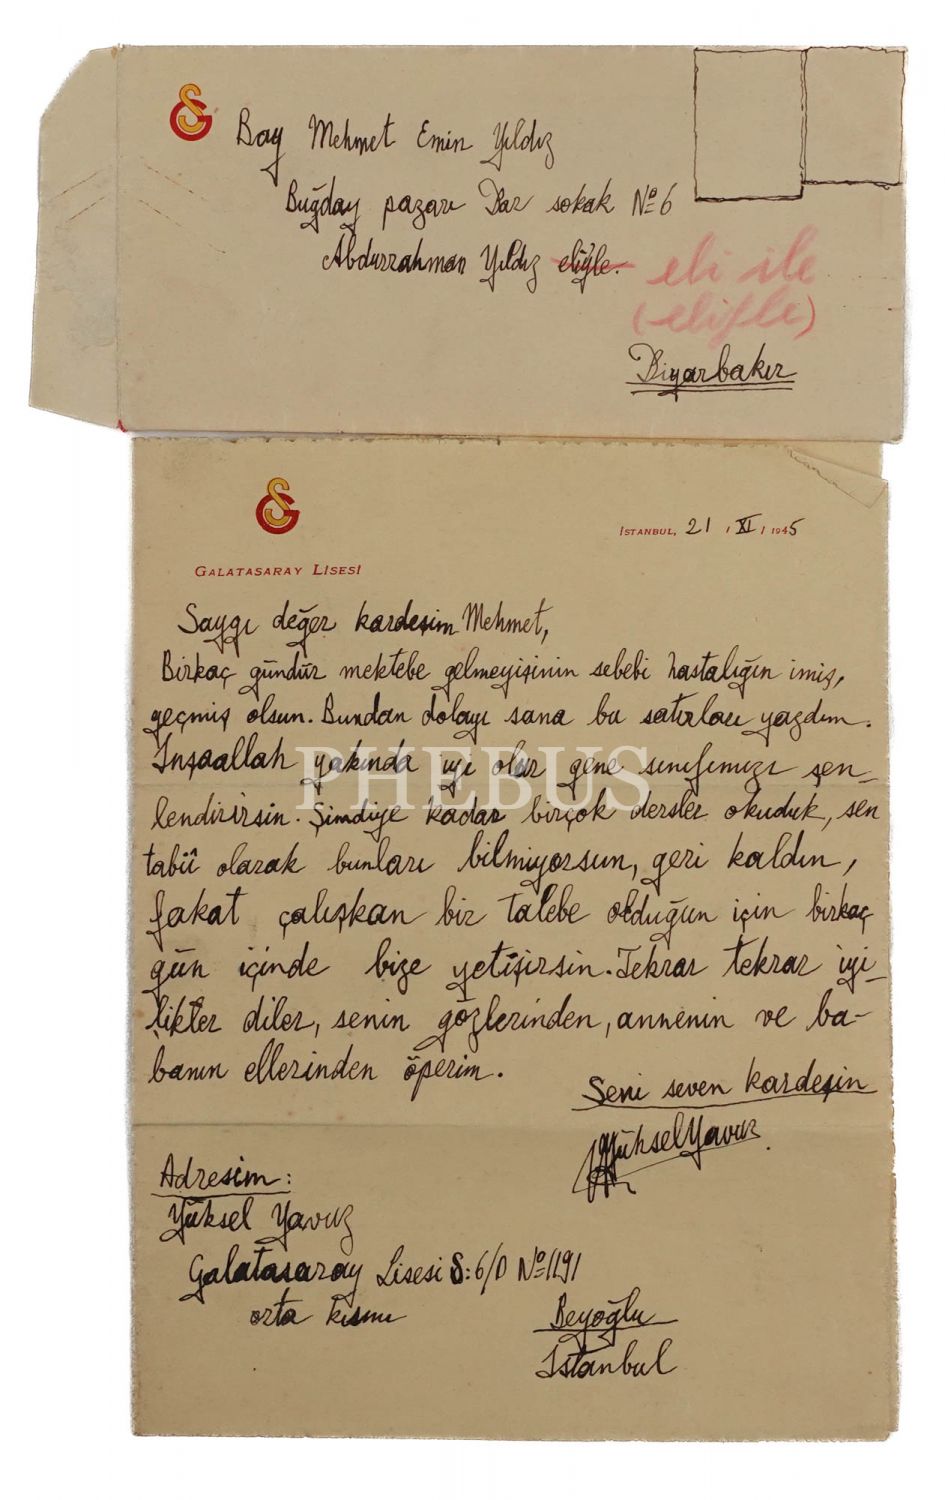 GS
Bay Mehmet Emin Yıldız
Buğday pazarı Dar sokak No=6
Abdurrahman Yıldız eliyle.
eli ile
(eliyle)
Diyarbakır
GS
İSTANBUL, 21 / XI / 1945
GALATASARAY LİSESİ
Saygı değer kardeşim Mehmet,
Birkaç gündür mektebe gelmeyişinin sebebi hastalığın imiş,
geçmiş olsun. Bundan dolayı sana bu satırları yazdım.
İnşaallah yakında iyi olur gene sınıfımızı şen-
PHEBUS
lendirirsin. Şimdiye kadar birçok dersler okuduk, sen
tabiî olarak bunları bilmiyorsun, geri kaldın,
fakat çalışkan bir talebe olduğun için birkaç
gün içinde bize yetişirsin. Tekrar tekrar iyi-
likler diler, senin gözlerinden, annenin ve ba-
banın ellerinden öperim.
Seni seven kardeşin
Yüksel Yavuz
Adresim:
Yüksel Yavuz
Galatasaray Lisesi S:6/D No=1191
orta kısmı
Beyoğlu
İstanbul